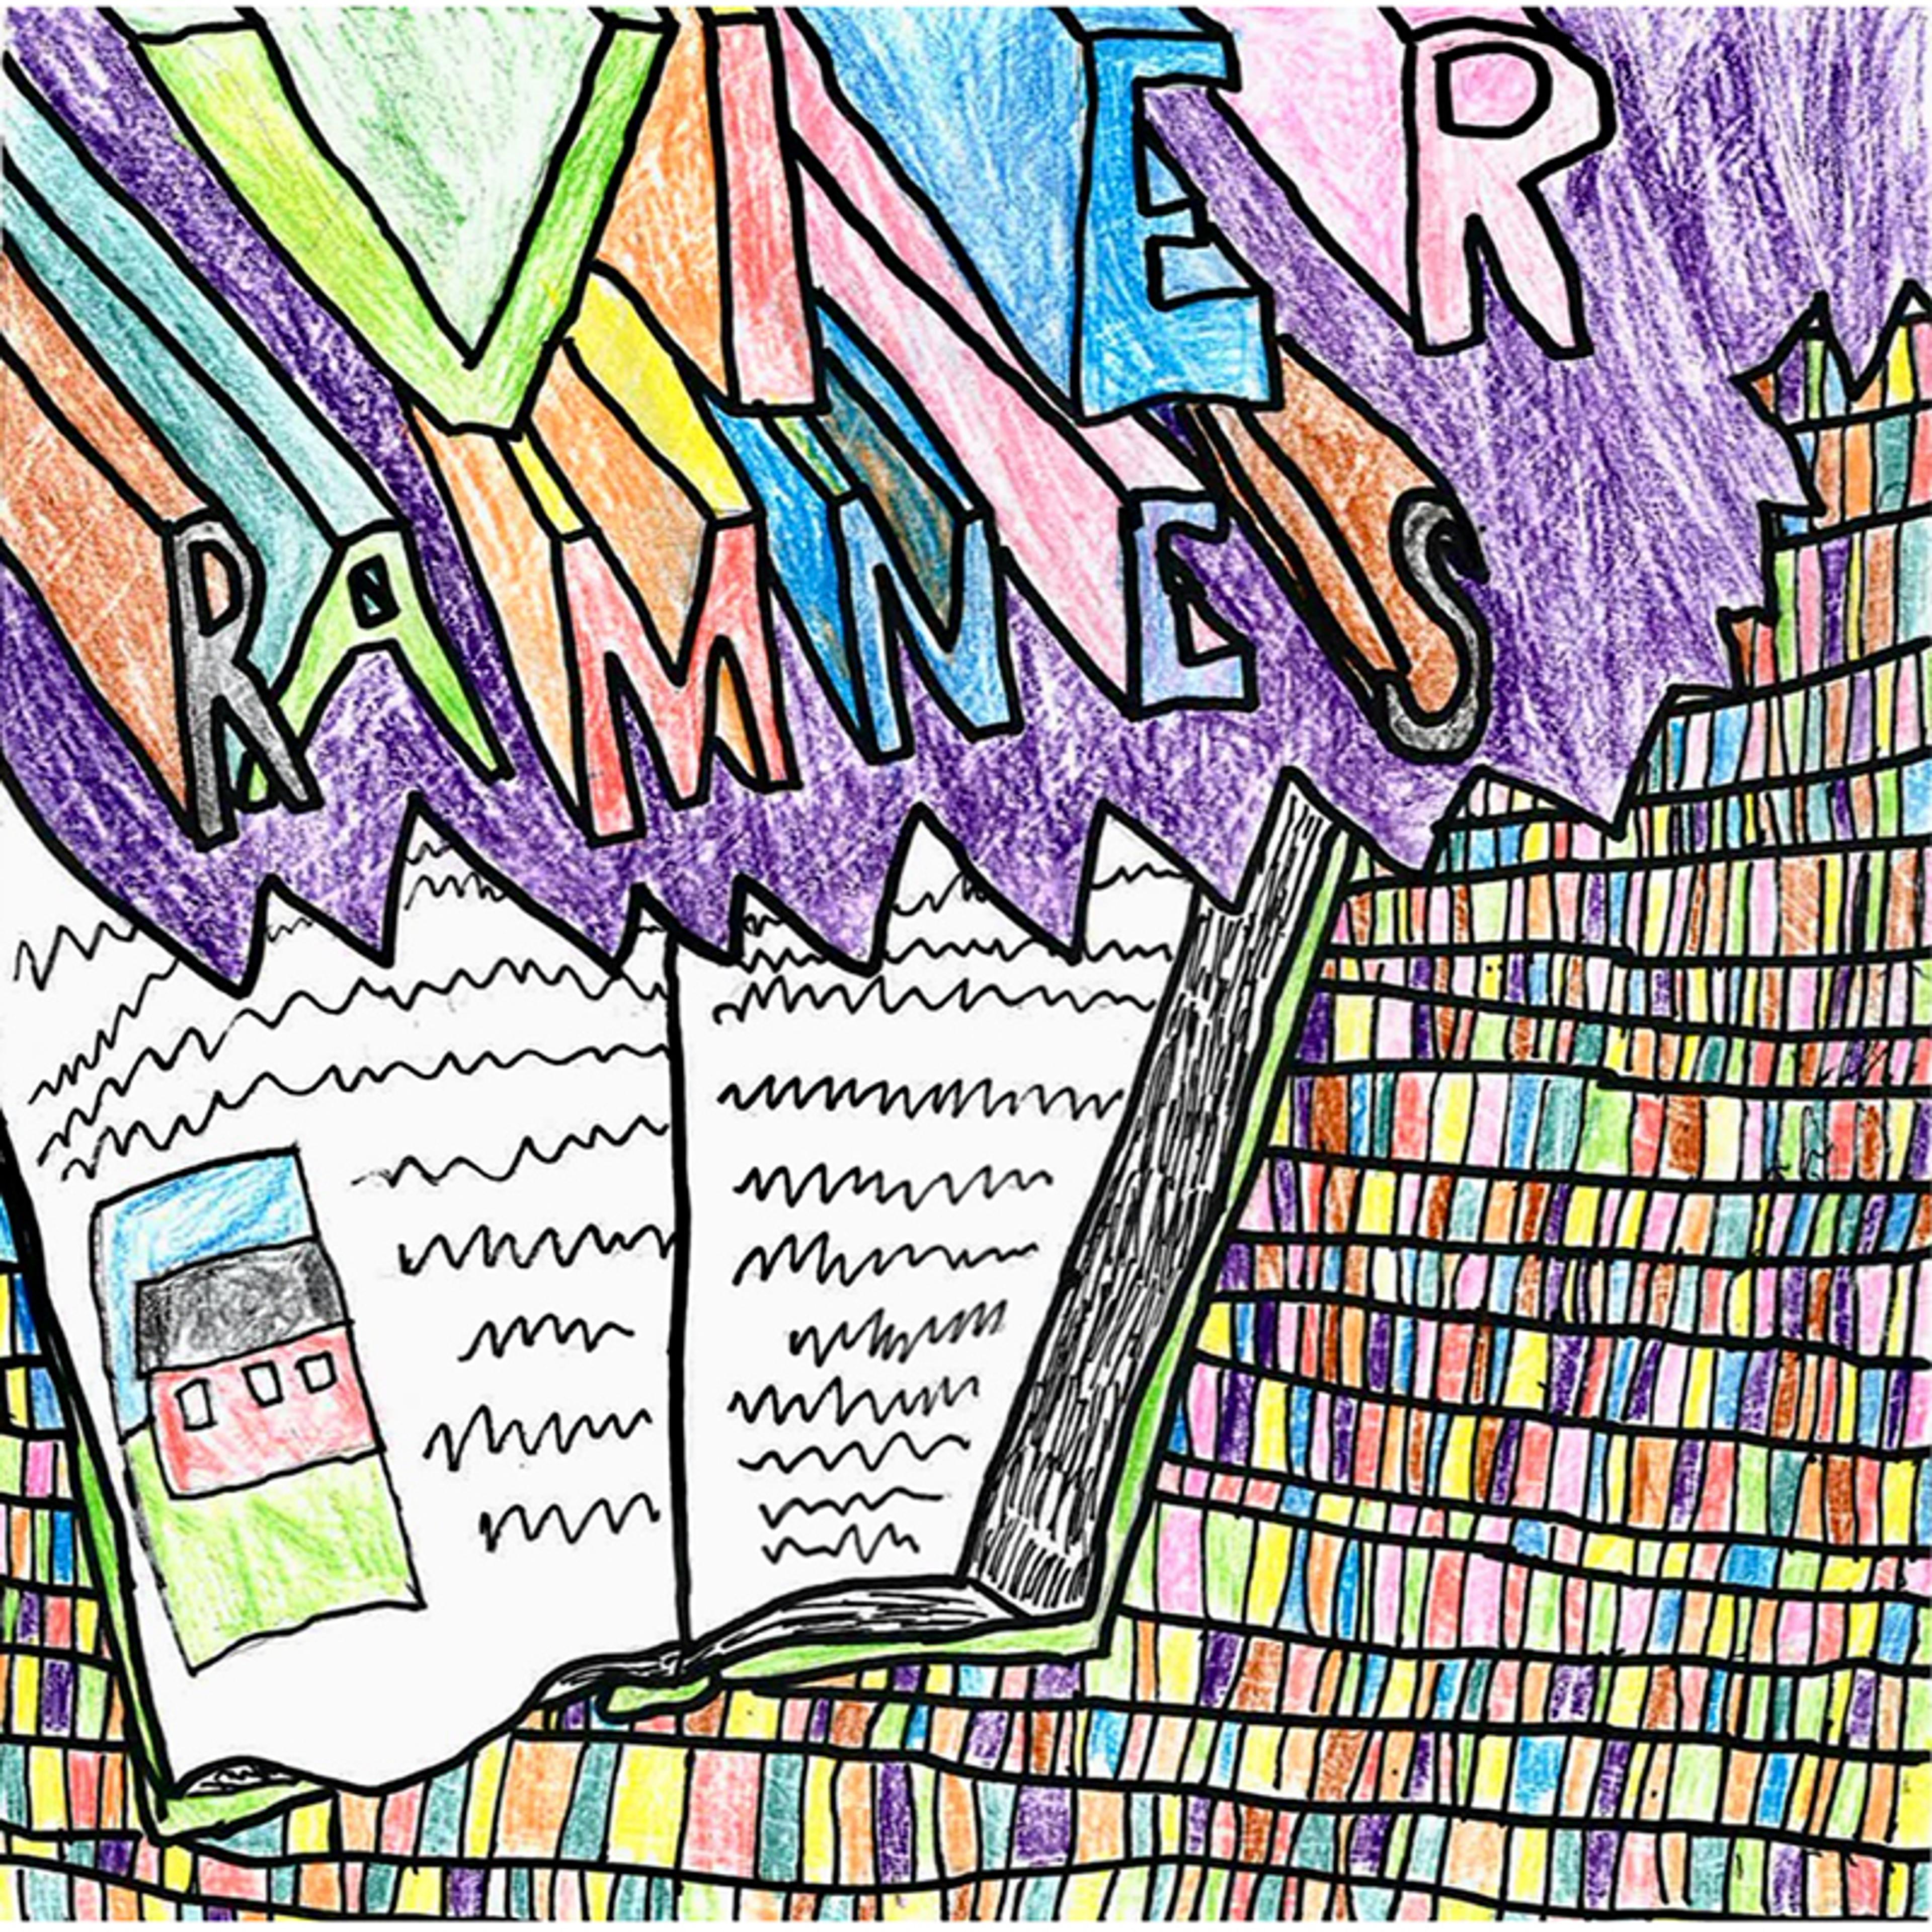 VIER
RAMNES